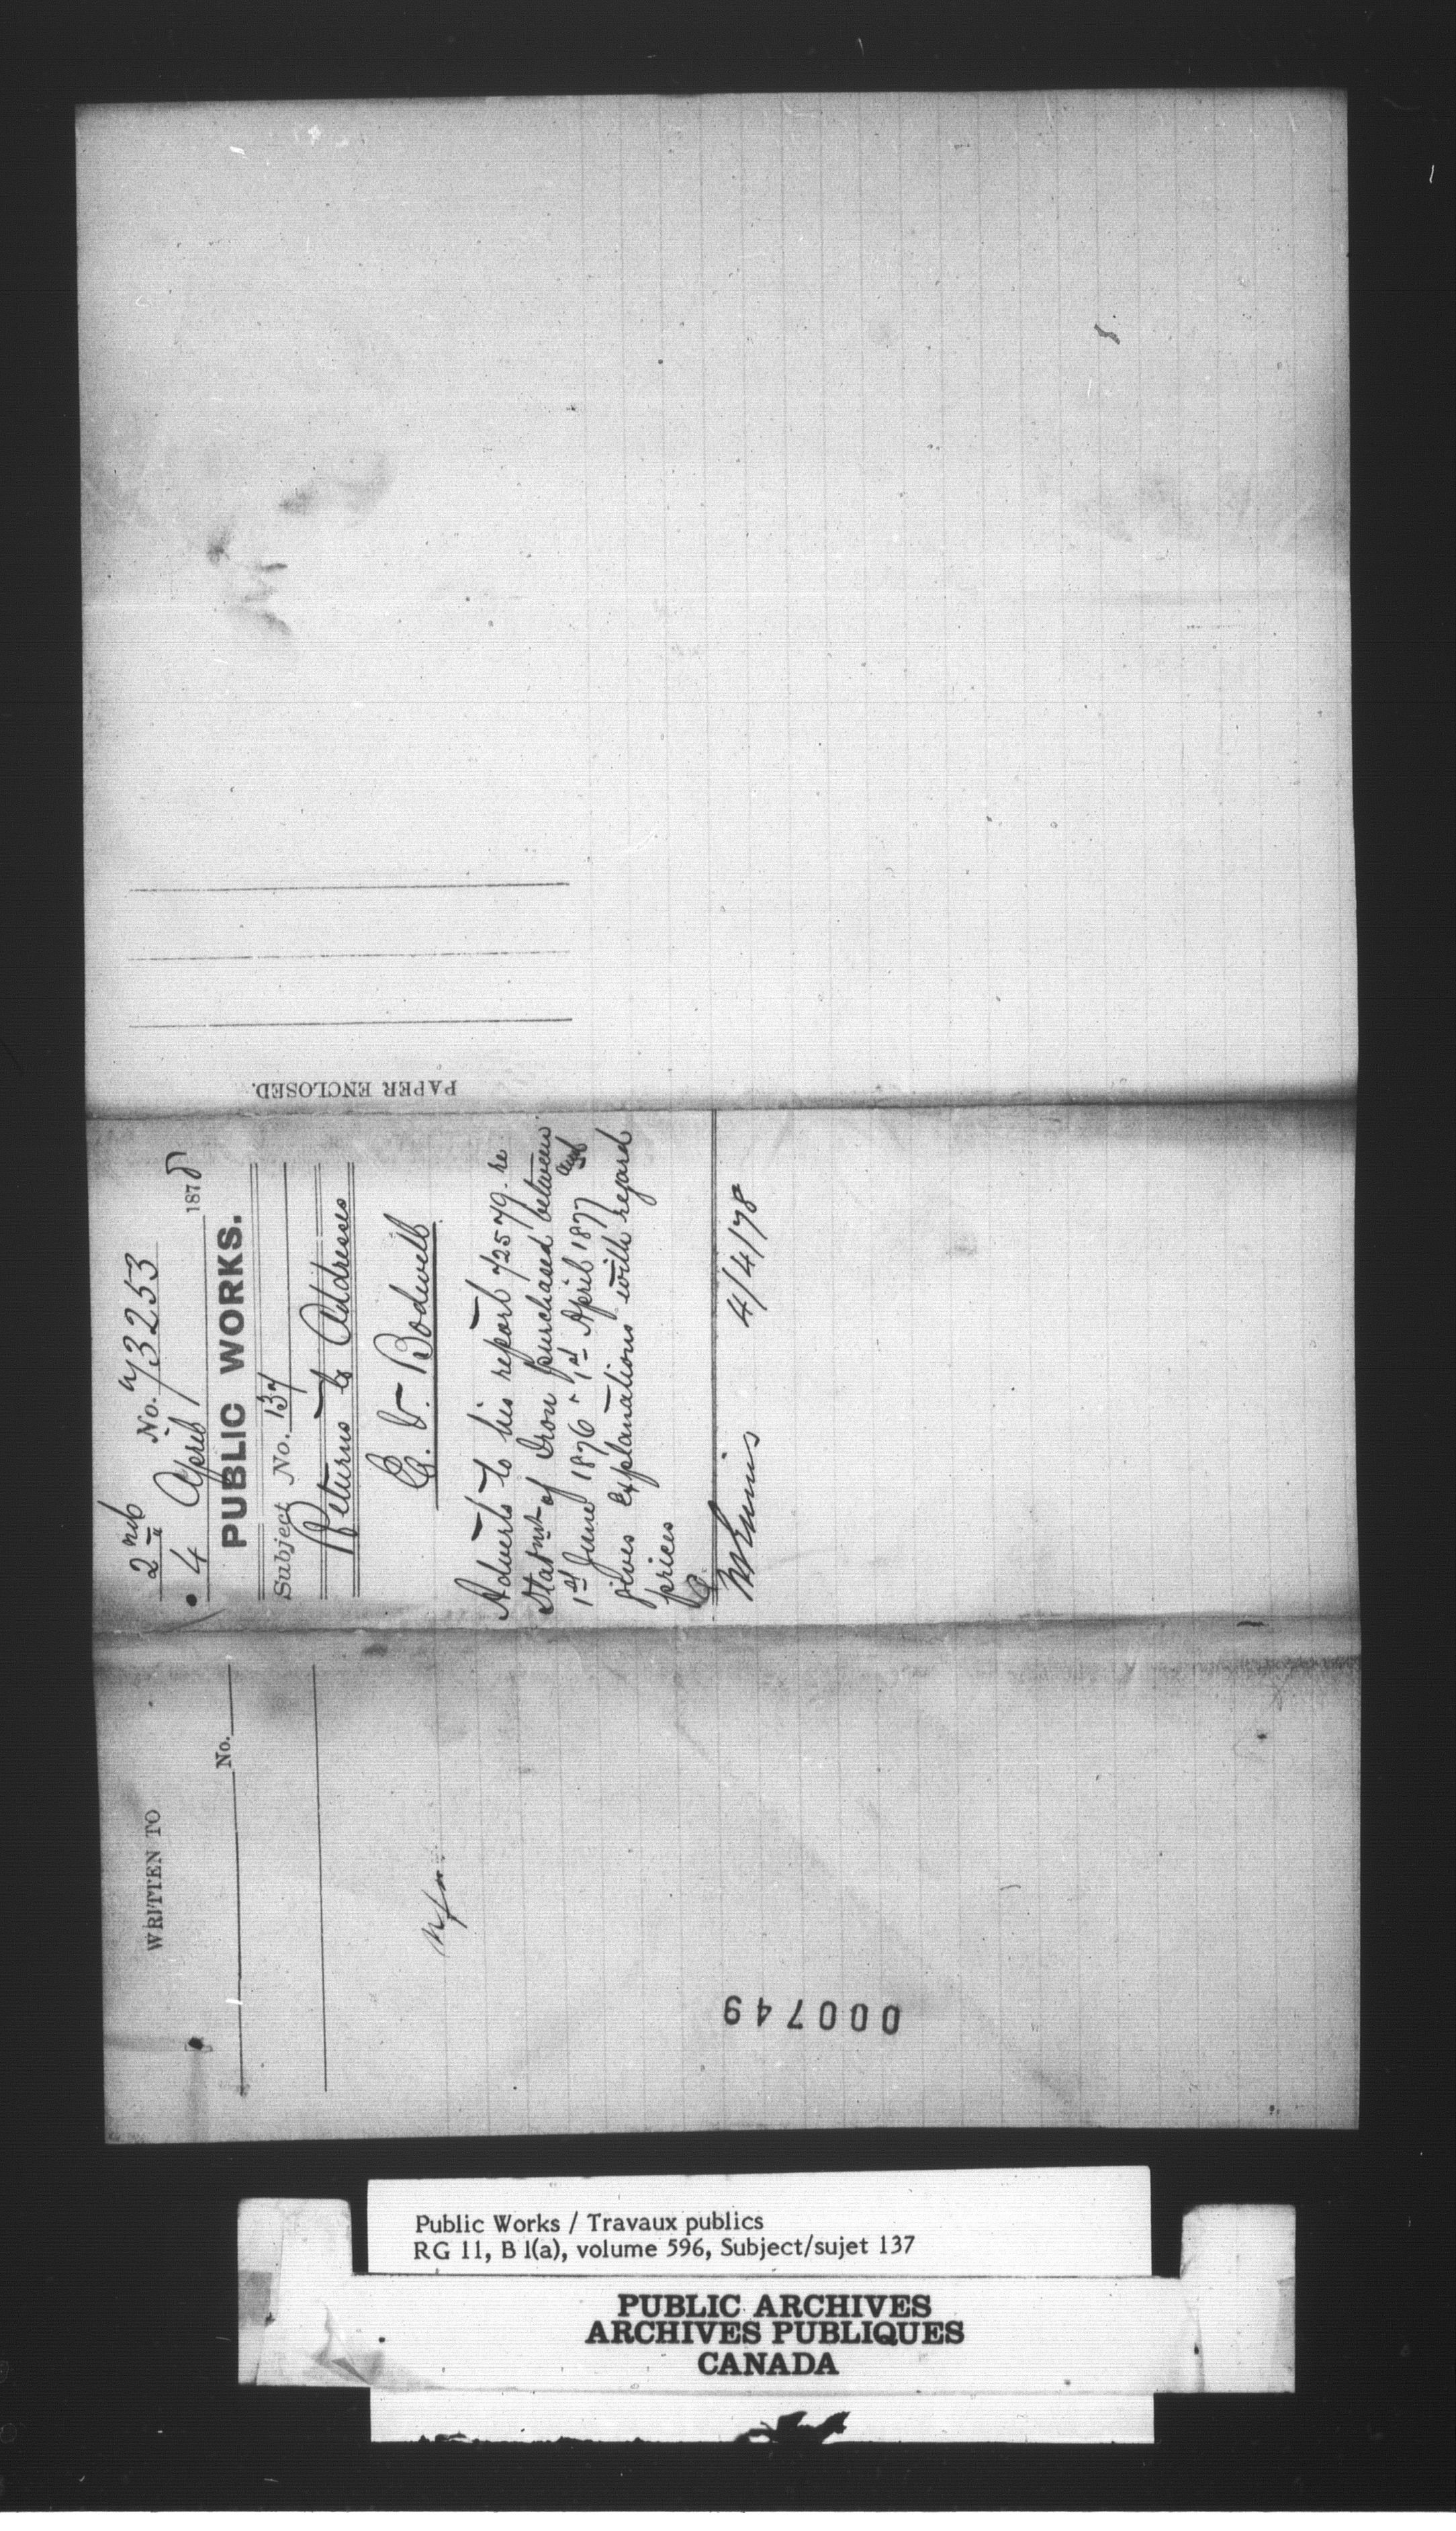 WRITTEN TO
No.
nfa
000749
2nd No. 73253
4 April 1878
PUBLIC WORKS.
Subject No. 137
Returns to Addresses
E. V. Bodwell
Adverts to his report 72579. re
Statmt of Iron purchased between
1st June 1876 & 1st April 1877 and
gives explanations with regard
prices
4/4/78
PAPER ENCLOSED.
Public Works / Travaux publics
RG 11, B 1(a), volume 596, Subject/sujet 137
PUBLIC ARCHIVES
ARCHIVES PUBLIQUES
CANADA